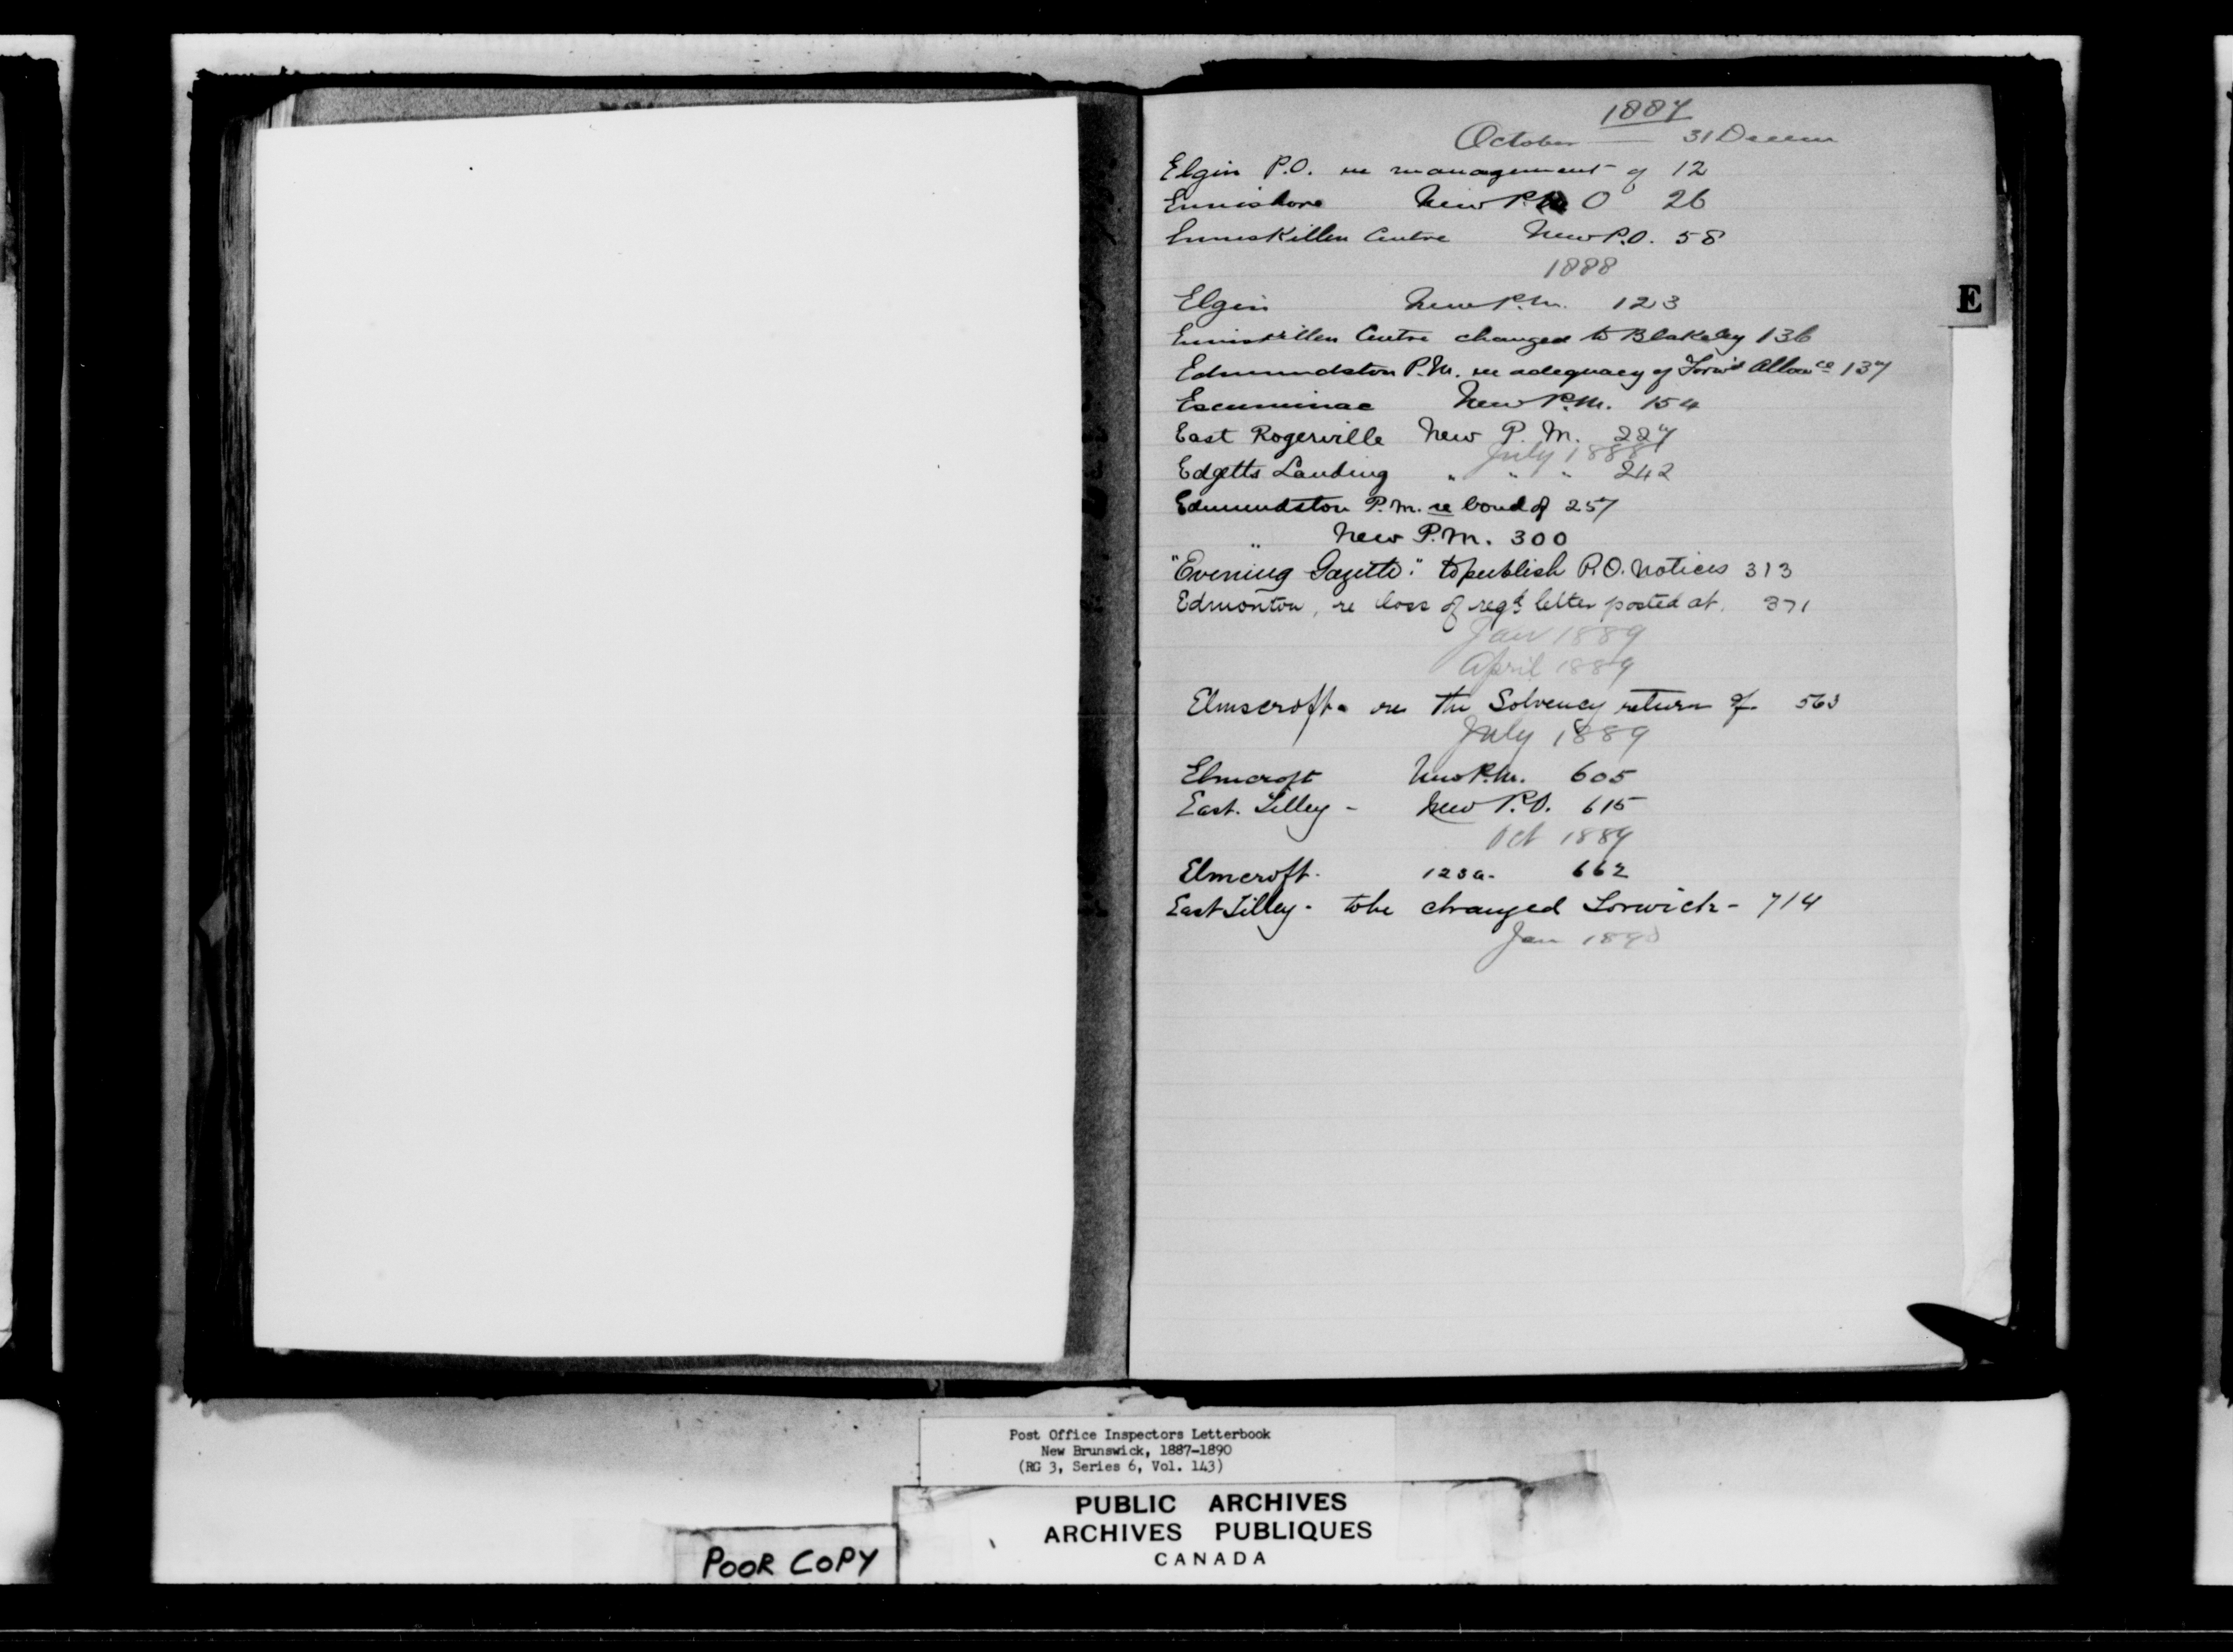 1887
October — 31 Decem
Elgin P.O. re management of 12
Ennishore New P.O 26
Enniskillen Centre New P.O. 58
1888
E
Elgin New P.M. 123
Enniskillen Centre changed to Blakeley 136
Edmundston P.M. re adequacy of Forw'd Allowce 137
Escuminac New P.M. 154
East Rogerville New P.M. 227
July 1888
Edgetts Landing " " " 242
Edmundston P.M. re bond of 257
" New P.M. 300
"Evening Gazette." to publish P.O. Notices 313
Edmonton, re loss of regd letter posted at. 371
Jan 1889
April 1889
Elmscroft - re the Solvency return of 563
July 1889
Elmcroft New P.M. 605
East. Tilley - New P.O. 615
Oct 1889
Elmcroft. 123a. 662
East Tilley - to be changed Lorwick - 714
Jan 1890
Post Office Inspectors Letterbook
New Brunswick, 1887-1890
(RG 3, Series 6, Vol. 143)
PUBLIC ARCHIVES
ARCHIVES PUBLIQUES
CANADA
POOR COPY